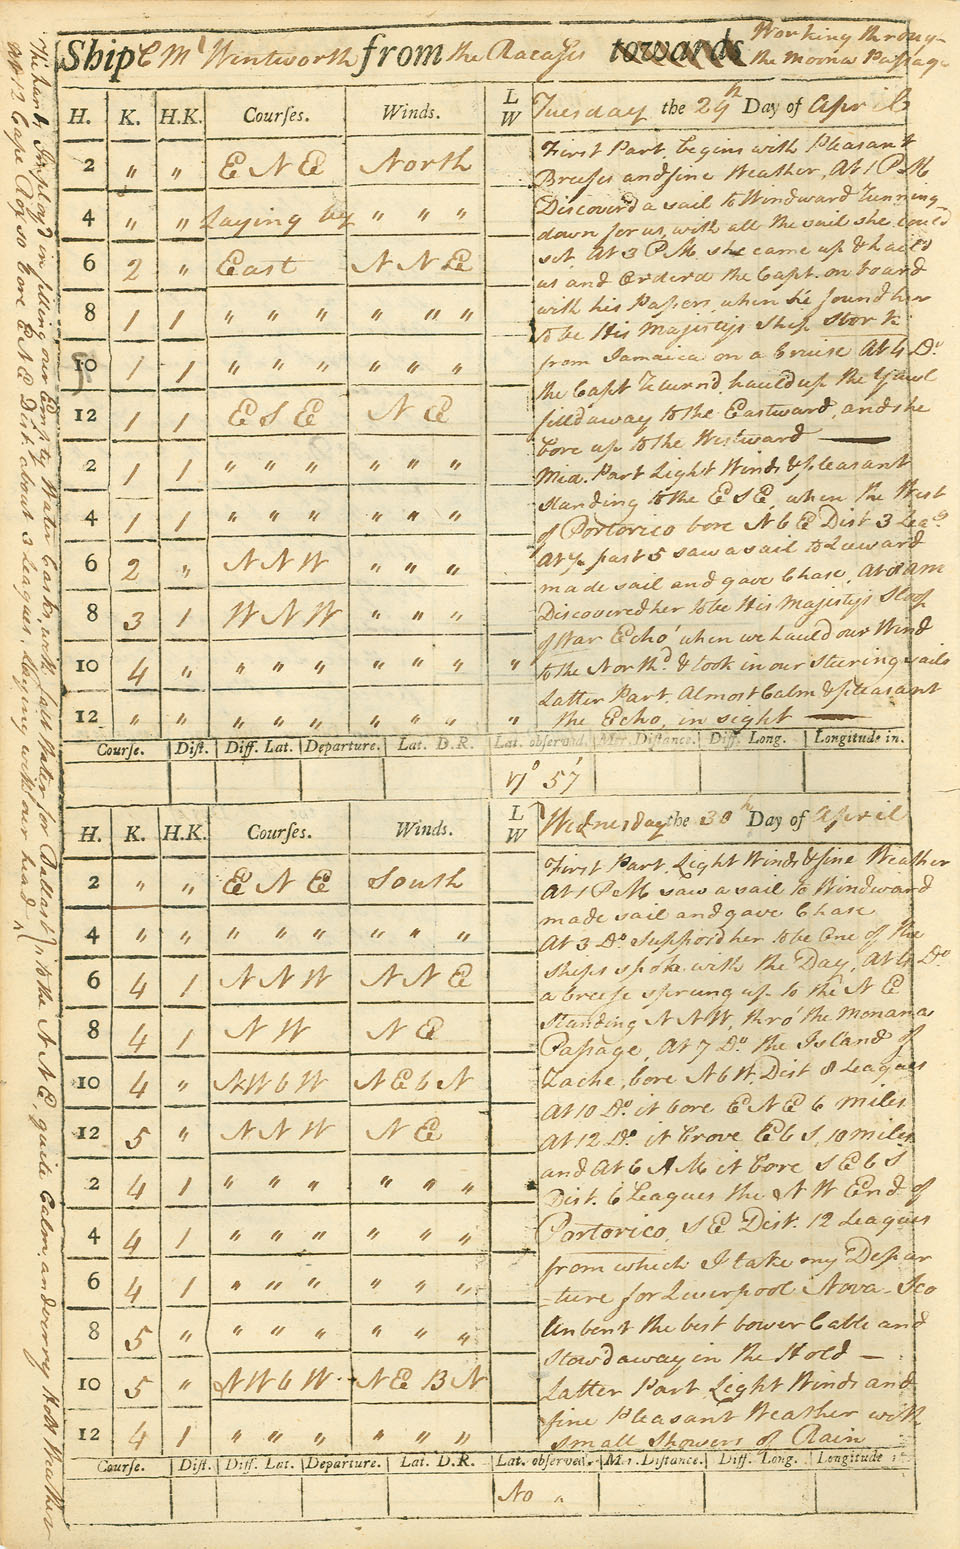 Ship C Ml Wentworth from the Racases towards Working throug-
the Moona Passage
H. K. H.K. Courses. Winds. L W Tuesday the 29th Day of April
2 " " E N E North
4 " " Laying by " " "
6 2 " East N N E
8 1 1 " " " " " "
10 1 1 " " " " " "
12 1 1 E S E N E
2 1 1 " " " " " "
4 1 1 " " " " " "
6 2 " N N W " " "
8 3 1 W N W " " "
10 4 " " " " " " " "
12 " " " " " " " " "
First Part begins with Pleasant
Breeses and fine Weather, At 1 P M
Discoverd a sail to Windward Running
down for us, with all the sail she could
set At 3 P M. she came up & haild
us and Orderd the Capt. on board
with his Papers, when he found her
to be His Majestys Ship Stork
from Jamaica on a Cruise At 4 Do.
the Capt Returnd. hauld up the Yawl
filld away to the Eastward, and she
bore up to the Westward
Mid. Part Light Winds & pleasant
standing to the E S E, when the West
of Portorico bore N b E Dist 3 Leags
At 1/2 past 5 saw a sail to Leeward
made sail and gave Chase, At 8 AM
Discovered her to be His Majestys Sloop
of War Echo when we hauld our Wind
to the Northd. & took in our steering sails
Latter Part. Almost Calm & pleasant
the Echo, in sight
Course. Dist. Diff. Lat. Departure. Lat. D.R. Lat. observed. Mer. Distance. Diff. Long. Longitude in.
17° 57'
H. K. H.K. Courses. Winds. L W Wednesday the 30th Day of April
2 " " E N E South
4 " " " " " " " "
6 4 1 N N W N N E
8 4 1 N W N E
10 4 " N W b W N E b N
12 5 " N N W N E
2 4 1 " " " " " "
4 4 1 " " " " " "
6 4 1 " " " " " "
8 5 " " " " " " "
10 5 " N W b W N E B N
12 4 1 " " " " " "
First Part, Light Winds & fine Weather
At 1 P M saw a sail to Windward
made sail and gave Chase
At 3 Do. Supposd her to be One of the
ships spoke with the Day, At 4 Do
a breese sprung up to the N E
Standing N N W, thro' the Monana
Passage, At 7 Do. the Island of
Zache, bore N b W. Dist 8 Leagues
At 10 Do. it bore E N E 6 miles
At 12 Do it brove E b S, 10 miles
and At 6 A M it bore S E b S
Dist. 6 Leagues the N W End of
Portorico, S E Dist. 12 Leagues
from which I take my Depar
-ture for Liverpool Nova-Sco
Unbent the best bower Cable and
Stowd away in the Hold
Latter Part Light Winds and
fine Pleasant Weather with
small Showers of Rain
Course. Dist. Diff. Lat. Departure. Lat. D.R. Lat. observed. Mer. Distance. Diff. Long. Longitude
No "
The hands Imployd in filling our Empty Water Casks with salt Water for Ballast
At 12 Cape Roxso bore E N E Dist about 3 Leagues. Laying with our head
to the N N E, quite Calm, and verry Hott Weather